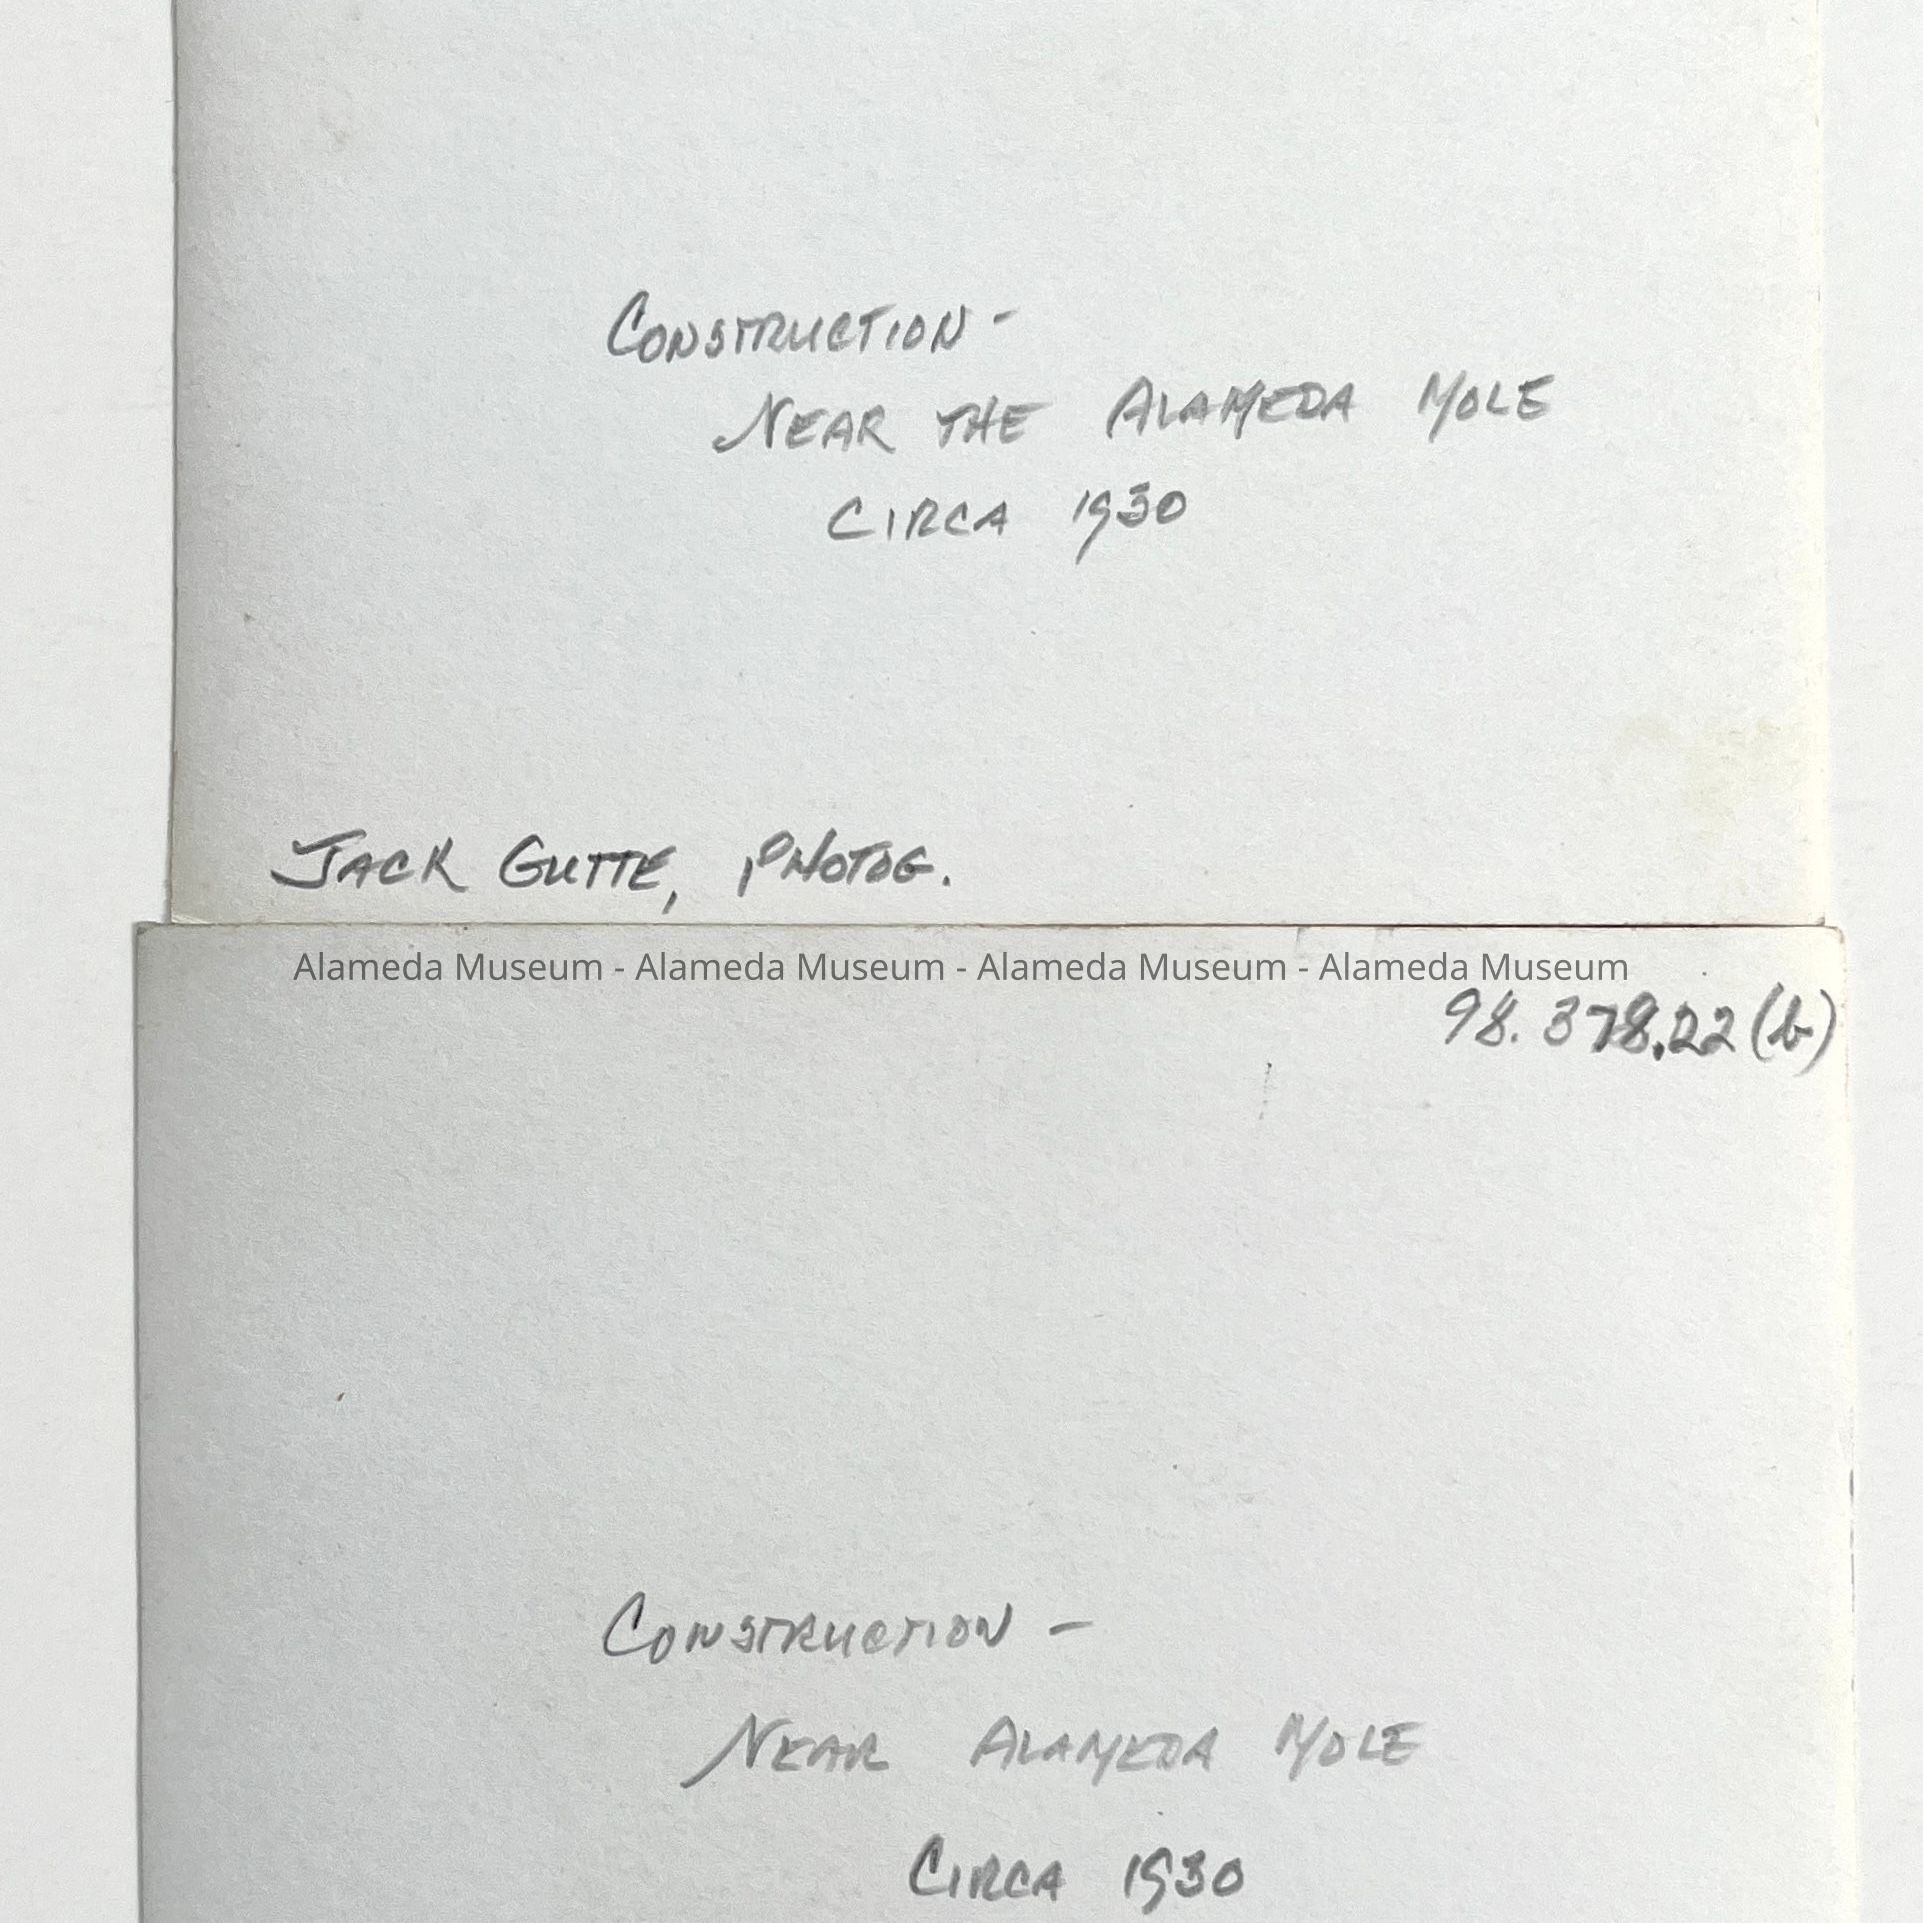 CONSTRUCTION -
NEAR THE ALAMEDA MOLE
CIRCA 1930
JACK GUTTE, PHOTOG.
Alameda Museum - Alameda Museum - Alameda Museum - Alameda Museum
98.378.22(b)
CONSTRUCTION -
NEAR ALAMEDA MOLE
CIRCA 1930